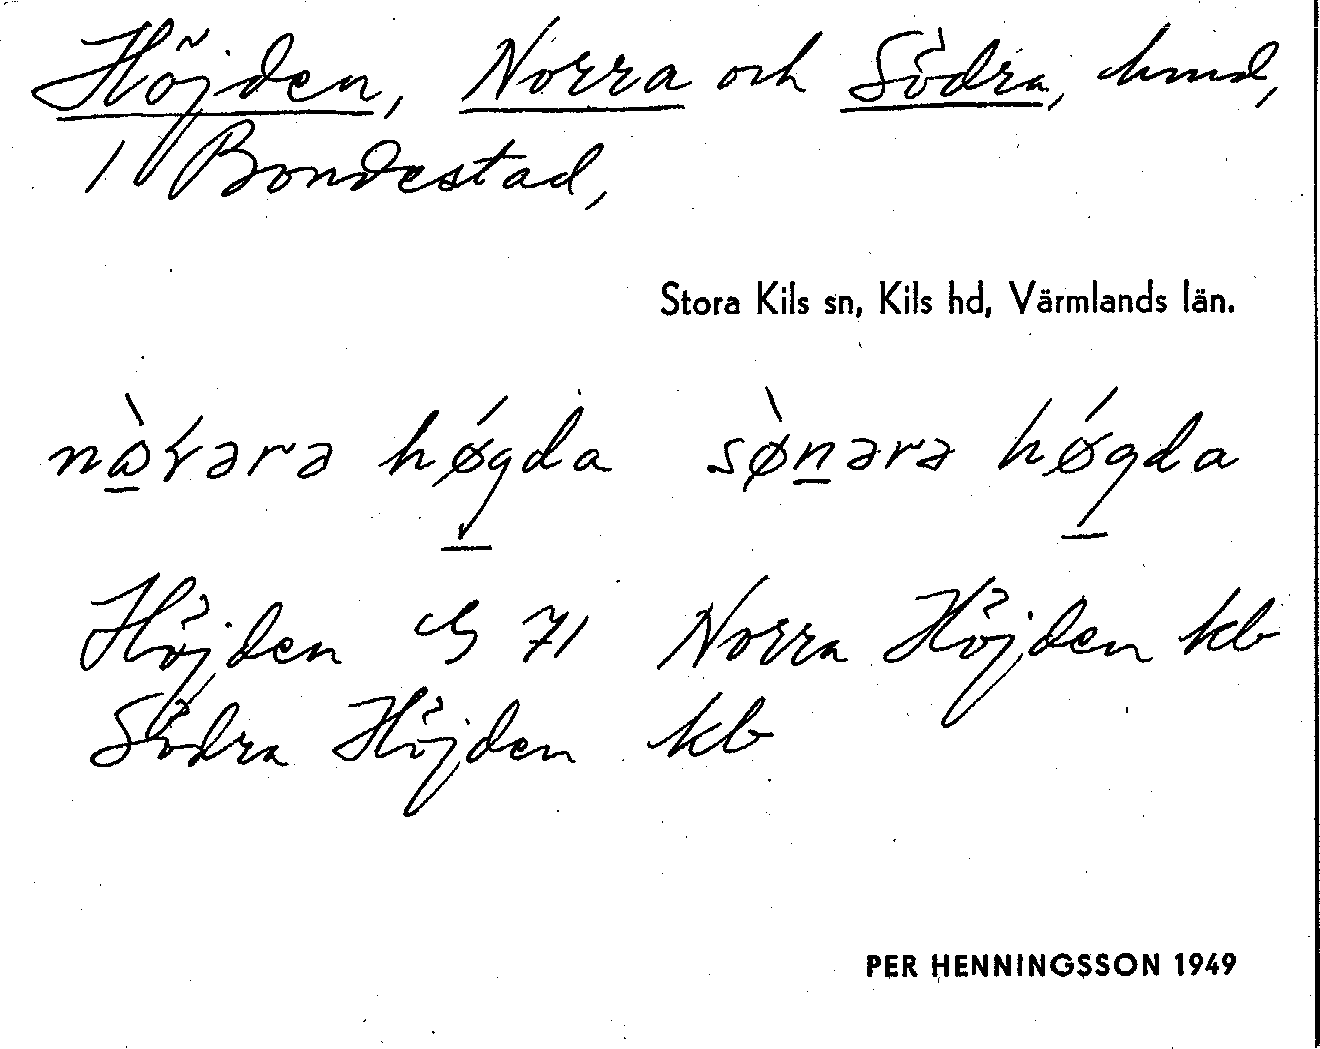 Höjden, Norra och Södra, hmd,
i Bondestad,
Stora Kils sn, Kils hd, Värmlands län.
høgda høgda
Höjden 71 Norra Höjden kb
Södra Höjden kb
PER HENNINGSSON 1949